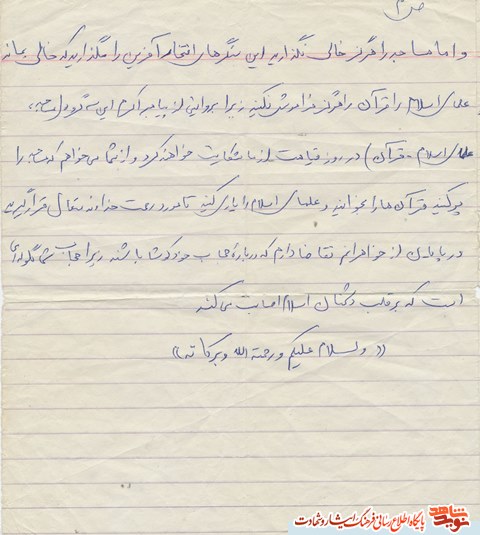 ص ۳
و اما مساجد را هرگز خالی نگذارید این سنگرهای افتخار آفرین را مگذارید که خالی بماند
علمای اسلام را قرآن را هرگز فراموش نکنید زیرا بروایتی از پیامبر اکرم این سه گروه (مساجد،
علمای اسلام - قرآن) در روز قیامت از ما شکایت خواهند کرد و از شما می‌خواهم که مساجد را
پر کنید قرآن‌ها را بخوانید و علمای اسلام را یاری کنید تا مورد رحمت خداوند متعال قرار گیرید
در پایان از خواهرانم تقاضا دارم که درباره حجاب خود کوشا باشند زیرا حجاب شما گلوله‌ای
است که بر قلب دشمنان اسلام اصابت می‌کند
«والسلام علیکم و رحمة الله و برکاته»
نوید شاهد
پایگاه اطلاع رسانی فرهنگ ایثار و شهادت